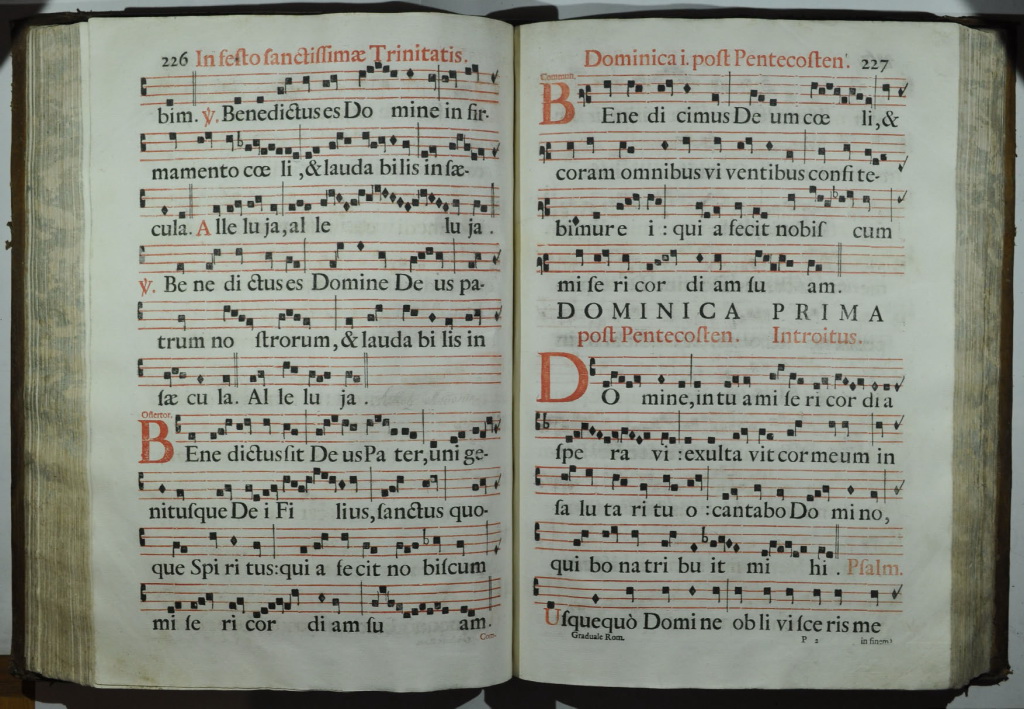 226 In festo sanctissimæ Trinitatis.
bim. ℣. Benedictus es Do mine in fir-
mamento cœ li, & lauda bilis in sæ-
cula. A lle lu ja, al le lu ja.
℣. Be ne di ctus es Domine De us pa-
trum no strorum, & lauda bi lis in
sæ cu la. Al le lu ja.
Offertor.
BEne dictus sit De us Pa ter, uni ge-
nitusque De i Fi lius, sanctus quo-
que Spi ri tus: qui a fe cit no biscum
mi se ri cor di am su am.
Com-
Dominica i. post Pentecosten. 227
Commun.
BEne di cimus De um cœ li, &
coram omnibus vi ventibus confi te-
bimur e i: qui a fecit nobis cum
mi se ri cor di am su am.
DOMINICA PRIMA
post Pentecosten. Introitus.
DO mine, in tu a mi se ri cor di a
spe ra vi: exulta vit cor meum in
sa lu ta ri tu o: cantabo Do mi no,
qui bo na tri bu it mi hi. Psalm.
Usquequò Domi ne ob li vi sce ris me
Graduale Rom. P 2 in finem?